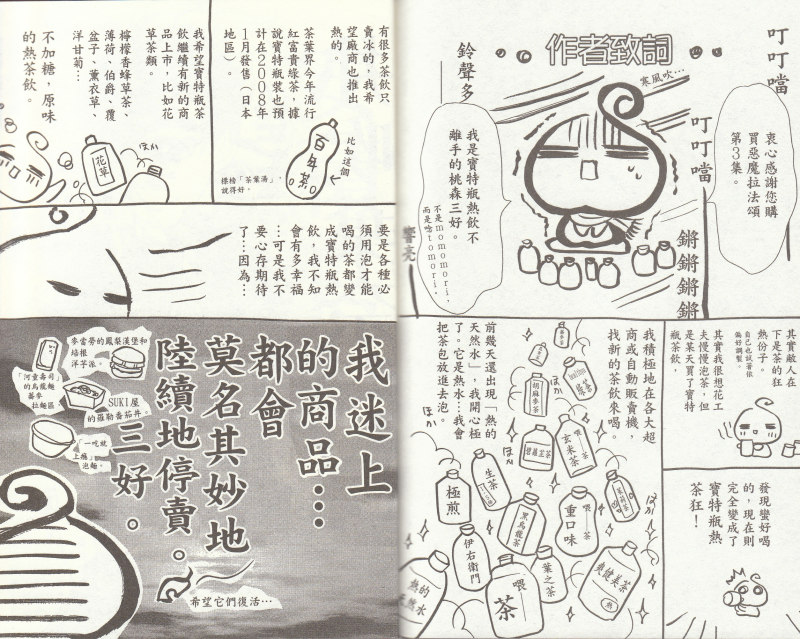 作者致詞
叮叮噹
叮叮噹
鈴聲多
響亮
鏘鏘鏘鏘
寒風吹…
衷心感謝您購
買惡魔拉法頌
第3集。
我是寶特瓶熱飲不
離手的桃森三好。
不是momomori,
而是唸tomori.
其實敝人在
下是茶的狂
熱份子。
自己也試著依
偏好調製。
其實我很想花工
夫慢慢泡茶,但
是某天買了寶特
瓶茶飲,
發現蠻好喝
的,現在則
完全變成了
寶特瓶熱
茶狂!
我積極地在各大超
商或自動販賣機,
找新的茶飲來喝。
前幾天還出現「熱的
天然水」,我開心極
了。它是熱水…我會
把茶包放進去泡。
ほか
ほか
ほか
胡麻麥茶
綠茶
碧蘿盆茶
玄米茶
茉莉茶
生茶
極煎
黑烏龍茶
喂—茶
重口味
伊右衛門
葉之茶
爽健美茶
熱
喂—
茶
熱的
天然水
有很多茶飲只
賣冰的,我希
望廠商也推出
熱的。
茶葉界今年流行
紅富貴綠茶,據
說寶特瓶裝也預
計在2008年
1月發售(日本
地區)。
比如這個
百年茶
標榜「茶葉湯」,
說得好。
我希望寶特瓶茶
飲繼續有新的商
品上市,比如花
草茶類。
檸檬香蜂草茶、
薄荷、伯爵、覆
盆子、薰衣草、
洋甘菊…
不加糖,原味
的熱茶飲。
花草
ほか
要是各種必
須用泡才能
喝的茶都變
成寶特瓶熱
飲,我不知
會有多幸福
…可是我不
要心存期待
了…因為…
我迷上
的商品…
都會
莫名其妙地
陸續地停賣。
三好。
麥當勞的鳳梨漢堡和
培根
洋芋派。
「河童壽司」
的烏龍麵
蕎麥
拉麵區
SUKI屋
的羅勒番茄丼。
「一吃就
上癮」
泡麵。
希望它們復活…